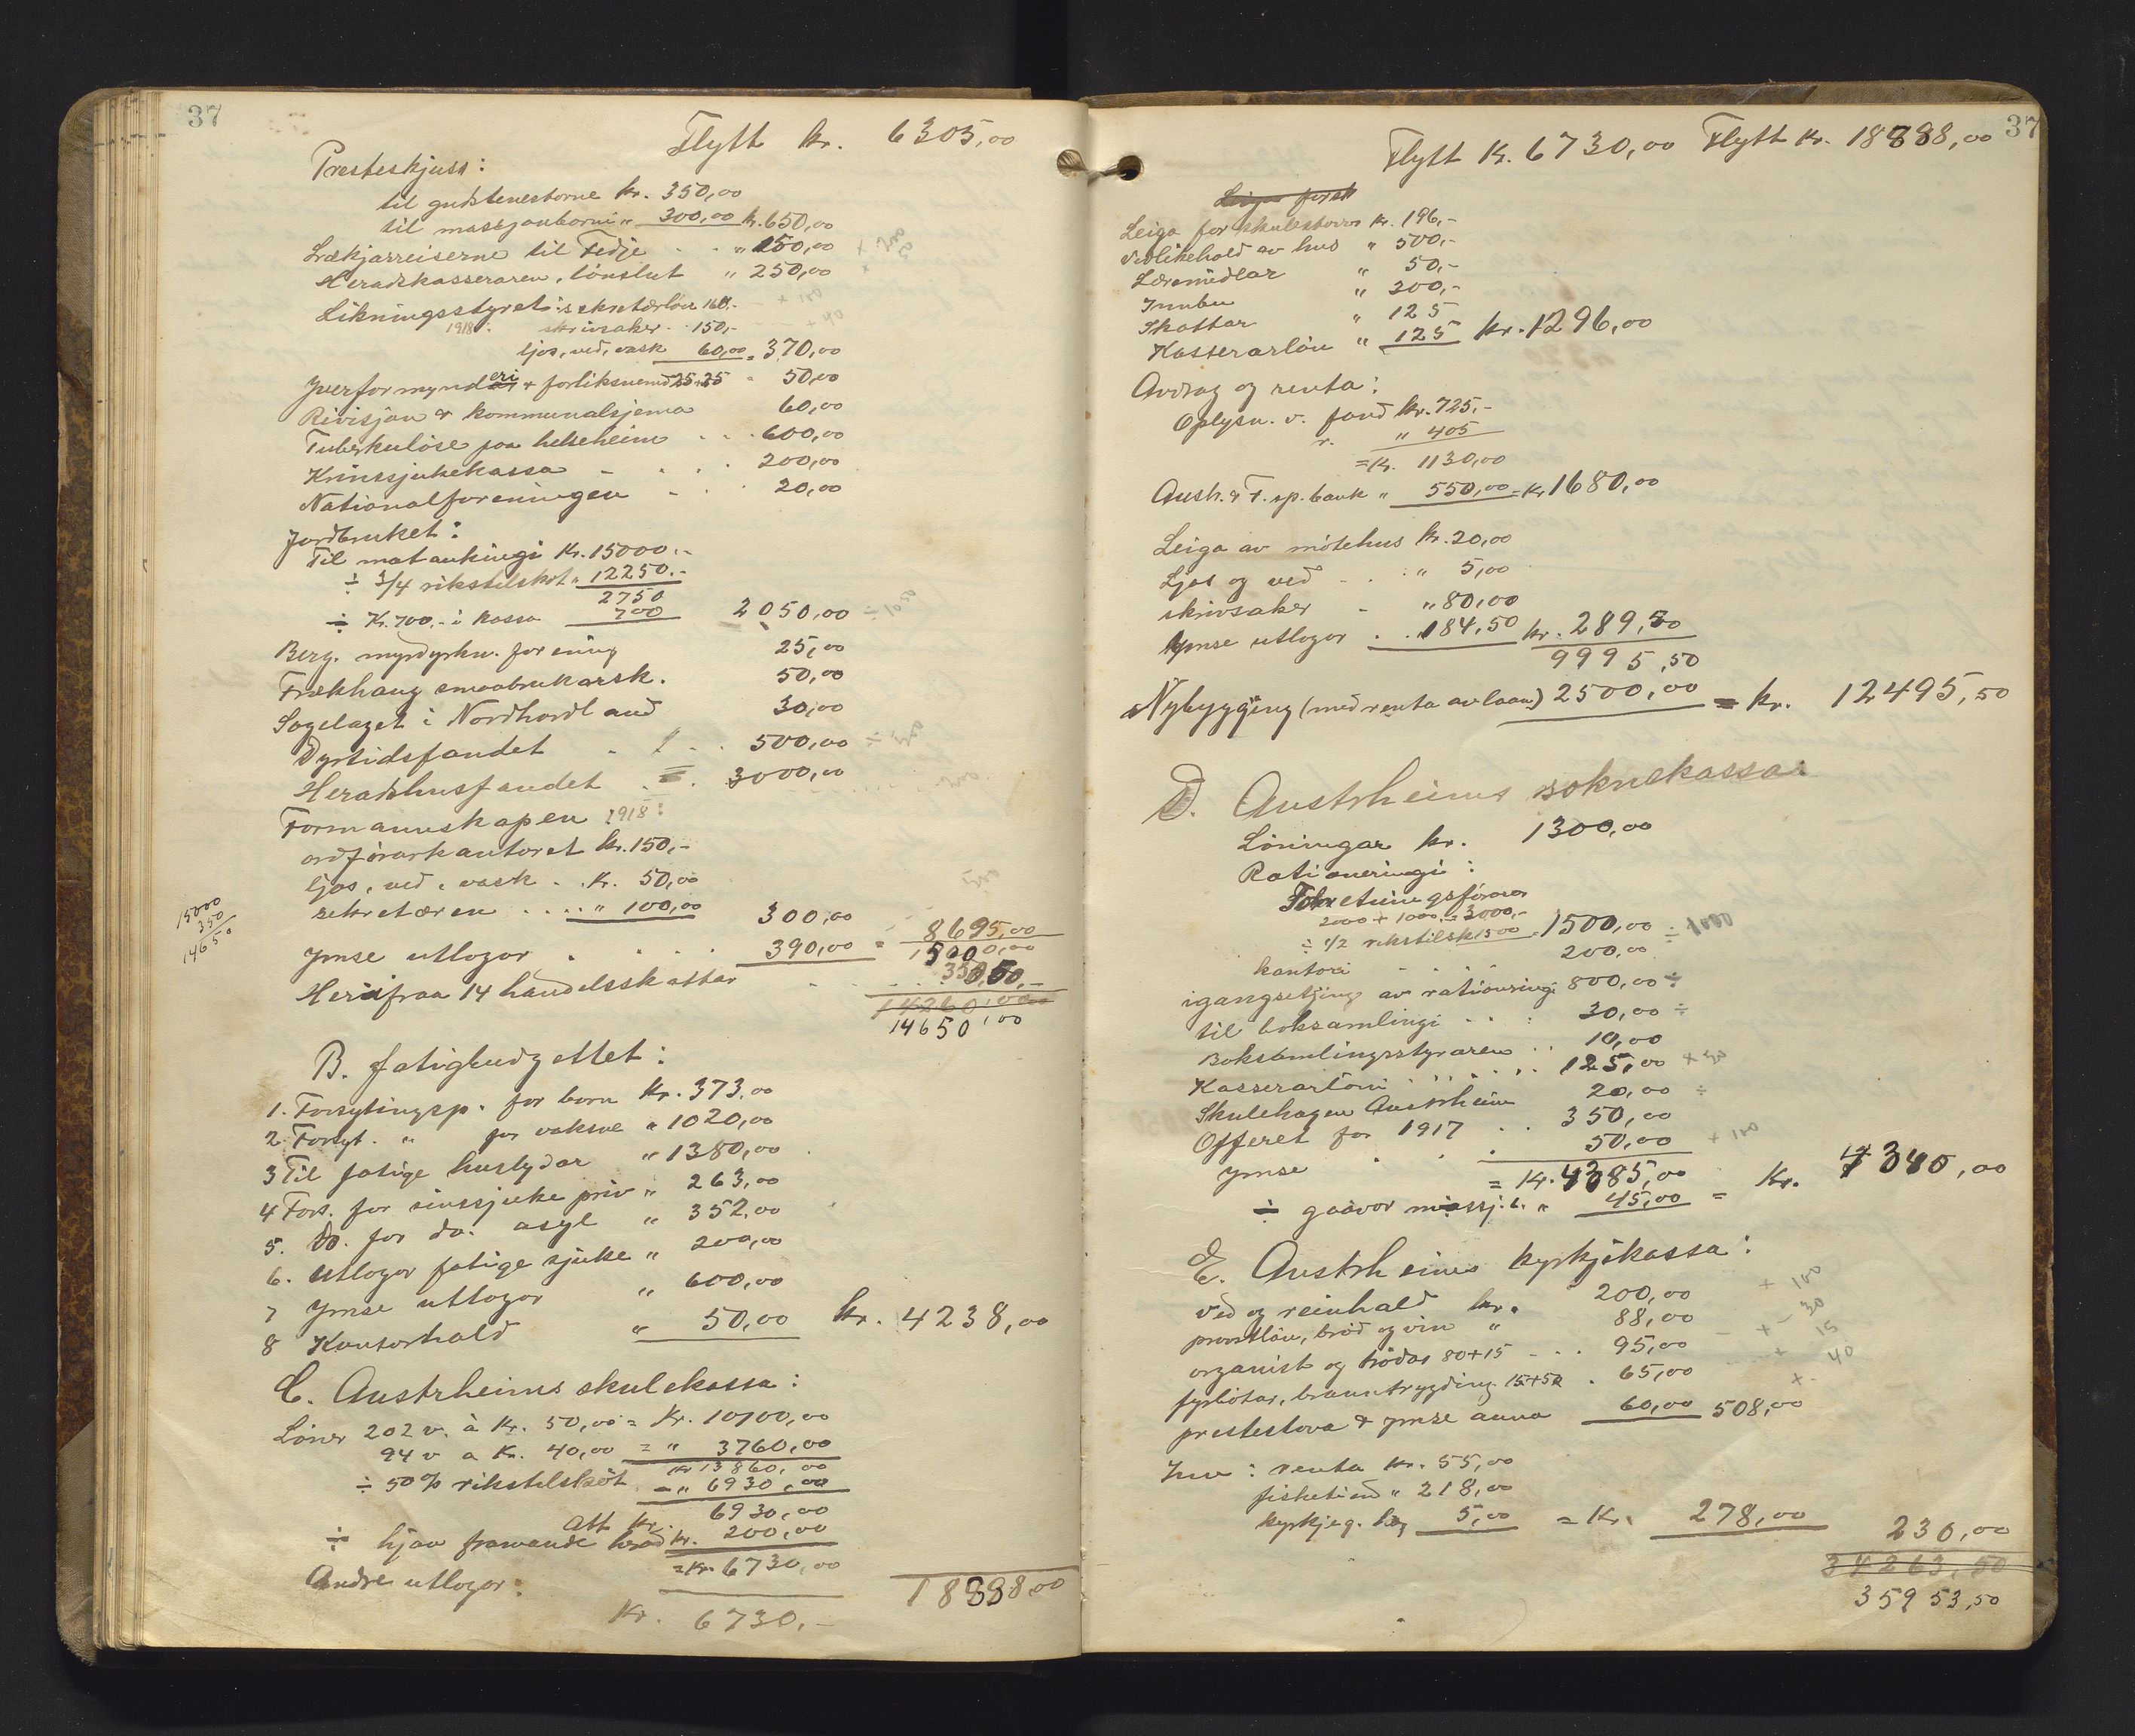 37
Flytt kr. 6305,00
Presteskjuss:
til gudstenestorne kr. 350,00
til massjonborni " 300,00 kr. 650,00
Lækjarreiserne til Fedje . . " 150,00
Heradskasseraren, lönslut " 250,00
Likningsstyret: sekretærlön 160,-
1918: skrivsaker . 150,-
ljos, ved, vask 60,00 = 370,00
Yverformynderi & forliksnemd 25+25 " 50,00
Rivisjon & kommunalsjema 60,00
Tuberkulöse paa helseheim . . . 600,00
Krinssjukekassa - . . . 200,00
Nationalforeningen - . . 20,00
Jordbruket:
Til mataukingi Kr. 15000,-
÷ 3/4 rikstilskot " 12250,-
2750
÷ Kr. 700,- i kassa 700 2050,00
Berg. myrdyrkn. forening 25,00
Frækhaug smaabrukarsk. 50,00
Sogelaget i Nordhordland 30,00
Dyrtidsfondet . . . 500,00
Heradshusfondet . . 3000,00
Formannskapen 1918:
ordförarkontoret kr. 150,-
ljos, ved, vask . . Kr. 50,00
sekretæren . . . . " 100,00 300,00
15000
350
14650
Ymse utlogor . . . . 390,00 = 8695,00
15000,00
Herifraa 14 handelsskattar . . . . 350,-
14650,00
B. fatigbudgettet:
1. Forsytingsp. for born Kr. 373,00
2. Forsyt. " for vaksne " 1020,00
3 Til fatige huslydar " 1380,00
4 Fors. for sinssjuke priv " 263,00
5. Do. for do. asyl " 352,00
6. Utlogor fatige sjuke " 200,00
7 Ymse utlogor " 600,00
8 Kontorhald " 50,00 kr. 4238,00
C. Austrheims skulekassa:
Löner 202 v. à Kr. 50,00 = Kr. 10100,00
94 v a Kr. 40,00 = " 3760,00
Kr 13860,00
÷ 50% rikstilskot - " 6930,00
Att Kr. 6930,00
÷ hjaa framande herad Kr. 200,00
= Kr. 6730,00
Andre utlogor:
Kr. 6730,-
18888,00
37
Flytt K. 6730,00 Flytt Kr. 18888,00
Leiga forsk
Leiga for skulestovor Kr. 196,-
Vedlikehald av hus " 500,-
Læremidlar " 50,-
Innbu " 300,-
Skattar " 125
Kasserarlön " 125 kr. 1296,00
Avdrag og renta:
Oplysn. v. fond kr. 725,-
r. " 405
= Kr. 1130,00
Aush. & F. sp. bank " 550,00 = Kr 1680,00
Leiga av mötehus kr. 20,00
Ljos og ved - . . " 5,00
skrivsaker - " 80,00
Ymse utlogor . . 184,50 kr. 289,50
9995,50
Nybygging (med renta av laan) 2500,00 = kr. 12495,50
D. Austrheims soknekassa:
Löningar kr. 1300,00
Rationeringi:
Forretningsförarar
2000 + 1000 = 3000,-
÷ 1/2 rikstilsk 1500 = 1500,00 ÷ 1000
kontori - - - - 200,00
igangsetjing av rationeringi 800,00 ÷
til boksamlingi - . : 30,00 ÷
Boksamlingsstyraren . . 10,00
Kasserarlöni . . . . . . 125,00
Skulehagen Austrheim 20,00 ÷
Offeret for 1917 . . 350,00
Ymse . . . 50,00 + 100
= Kr. 4385,00
÷ gaavor missj. b. " 45,00 = Kr. 4340,00
E. Austrheims kyrkjekassa:
ved og reinhald kr. 200,00 + 100
prestlön, bröd og vin " 88,00 - 30
organist og trödar 80+15 - . . 95,00 + 15
fyrbötar, branntrygding 15+50 . 65,00 + 40
prestestova & ymse anna 60,00 508,00
Inn: renta kr. 55,00
fisketiend " 218,00
kyrkjeg. 5,00 = Kr. 278,00 230,00
34263,50
35953,50